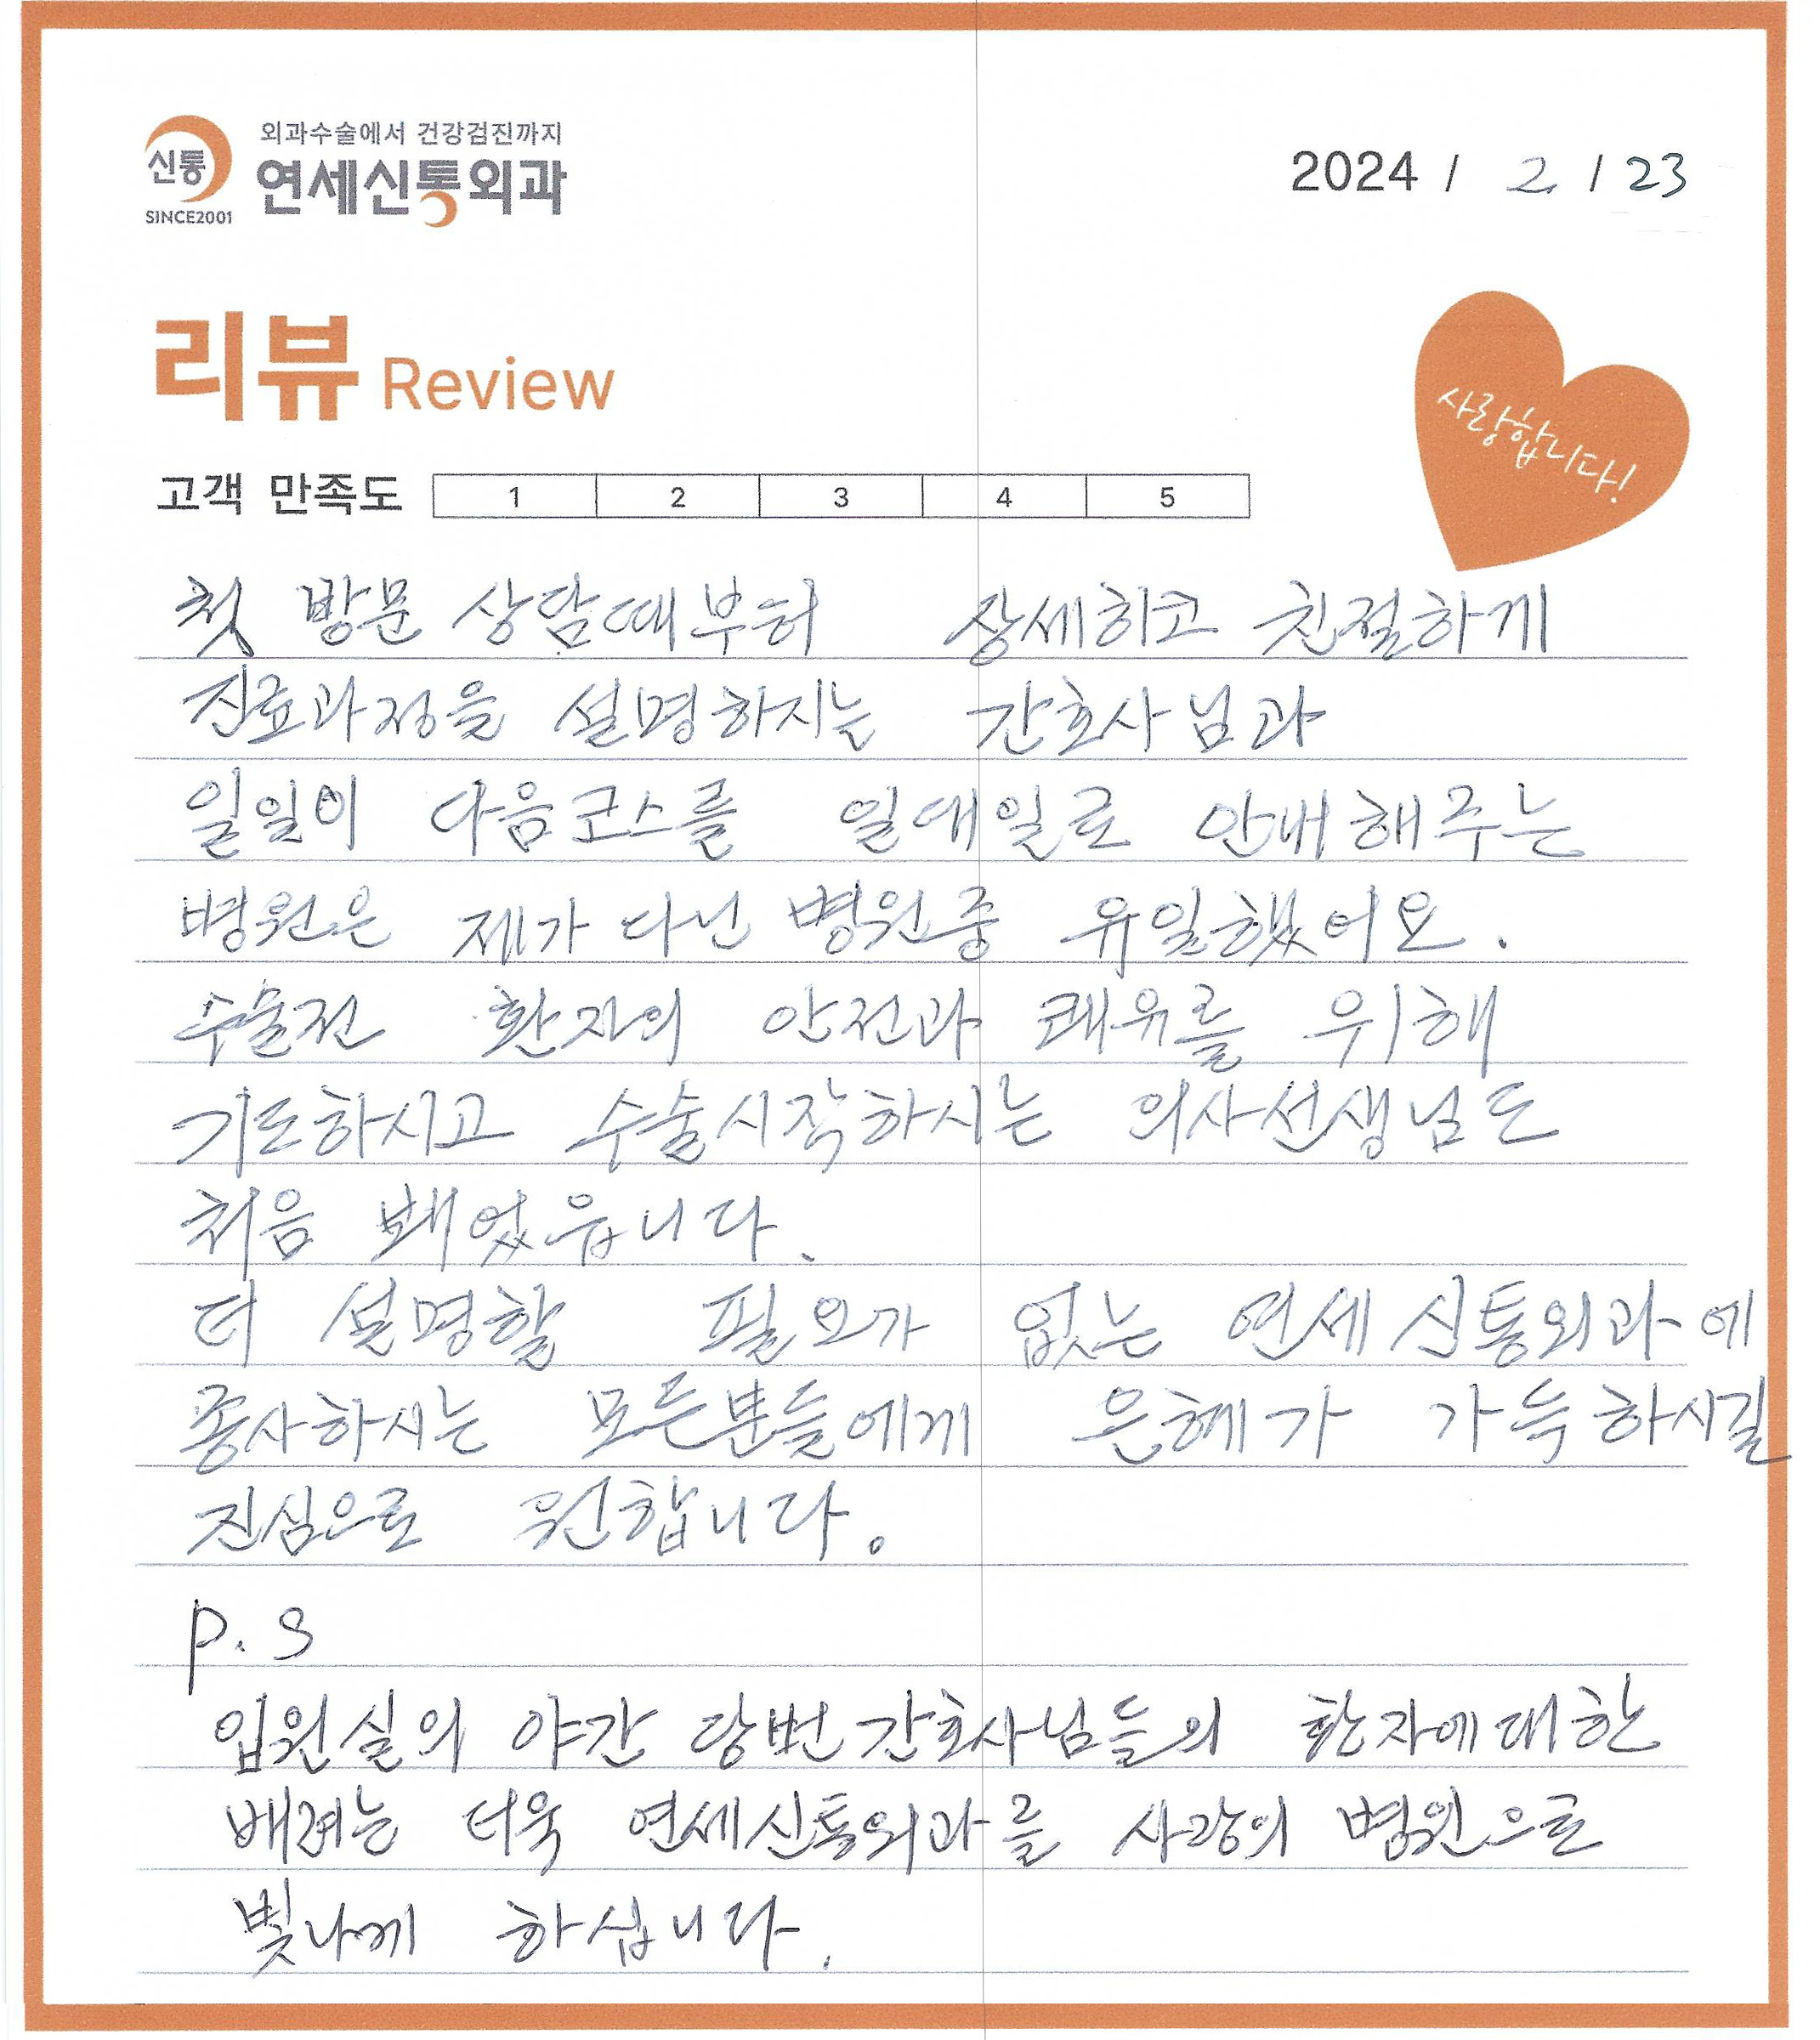 신통
SINCE2001
외과수술에서 건강검진까지
연세신통외과
2024 / 2 / 23
리뷰 Review
사랑합니다!
고객 만족도 1 2 3 4 5
첫 방문 상담때부터 상세하고 친절하게
진료과정을 설명하지는 간호사님과
일일이 다음코스를 일대일로 안내해주는
병원은 제가 다닌 병원중 유일했어요.
수술전 환자의 안전과 쾌유를 위해
기도하시고 수술시작하시는 의사선생님도
처음 뵈었읍니다.
더 설명할 필요가 없는 연세신통외과에
종사하시는 모든분들에게 은혜가 가득하시길
진심으로 원합니다.
p.s
입원실의 야간 당번간호사님들의 환자에대한
배려는 더욱 연세신통외과를 사랑의 병원으로
빛나게 하십니다.